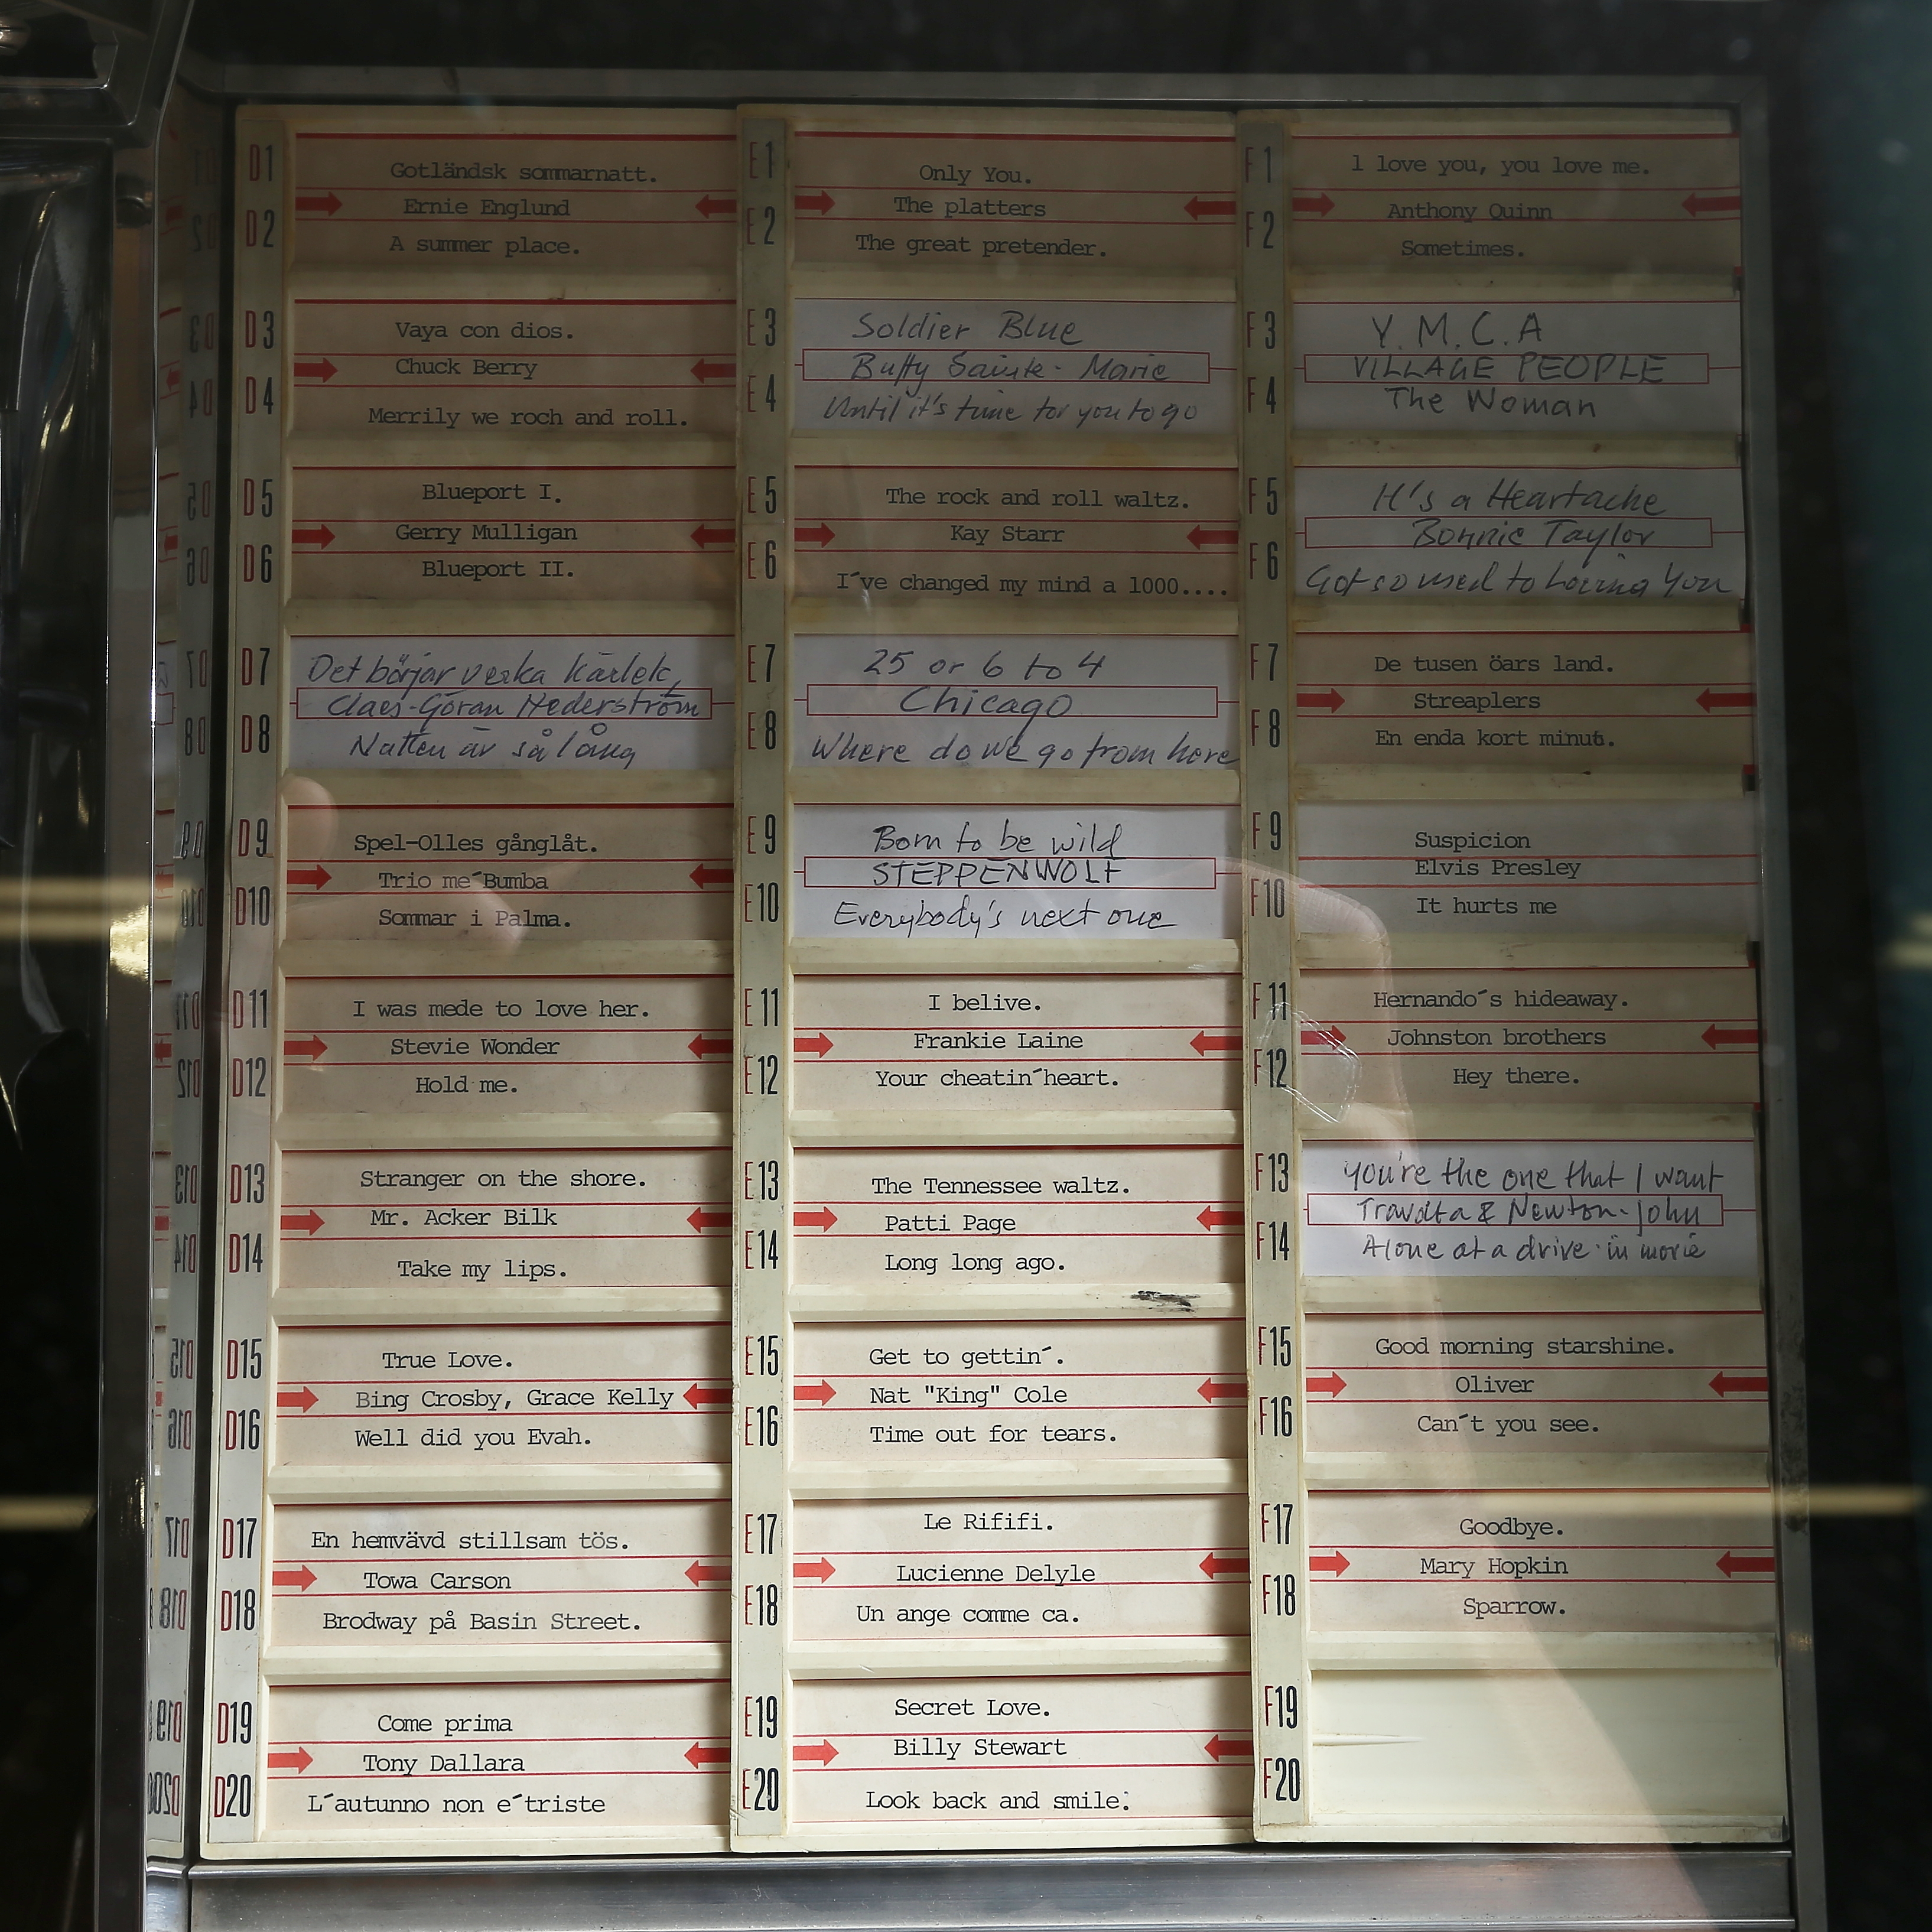 D1
Gotländsk sommarnatt.
Ernie Englund
D2
A summer place.
D3
Vaya con dios.
Chuck Berry
D4
Merrily we roch and roll.
D5
Blueport I.
Gerry Mulligan
D6
Blueport II.
D7
Det börjar verka kärlek,
Claes-Göran Hederström
D8
Natten är så lång
D9
Spel-Olles gånglåt.
Trio me´Bumba
D10
Sommar i Palma.
D11
I was mede to love her.
Stevie Wonder
D12
Hold me.
D13
Stranger on the shore.
Mr. Acker Bilk
D14
Take my lips.
D15
True Love.
Bing Crosby, Grace Kelly
D16
Well did you Evah.
D17
En hemvävd stillsam tös.
Towa Carson
D18
Brodway på Basin Street.
D19
Come prima
Tony Dallara
D20
L´autunno non e´triste
E1
Only You.
The platters
E2
The great pretender.
E3
Soldier Blue
Buffy Sainte-Marie
E4
Until it's time for you to go
E5
The rock and roll waltz.
Kay Starr
E6
I´ve changed my mind a 1000....
E7
25 or 6 to 4
Chicago
E8
Where do we go from here
E9
Born to be wild
STEPPENWOLF
E10
Everybody's next one
E11
I belive.
Frankie Laine
E12
Your cheatin´heart.
E13
The Tennessee waltz.
Patti Page
E14
Long long ago.
E15
Get to gettin´.
Nat "King" Cole
E16
Time out for tears.
E17
Le Rififi.
Lucienne Delyle
E18
Un ange comme ca.
E19
Secret Love.
Billy Stewart
E20
Look back and smile.
F1
l love you, you love me.
Anthony Quinn
F2
Sometimes.
F3
Y.M.C.A
VILLAGE PEOPLE
F4
The Woman
F5
It's a Heartache
Bonnie Taylor
F6
Got so used to loving You
F7
De tusen öars land.
Streaplers
F8
En enda kort minut.
F9
Suspicion
Elvis Presley
F10
It hurts me
F11
Hernando´s hideaway.
Johnston brothers
F12
Hey there.
F13
You're the one that I want
Travolta & Newton-John
F14
Alone at a drive-in movie
F15
Good morning starshine.
Oliver
F16
Can´t you see.
F17
Goodbye.
Mary Hopkin
F18
Sparrow.
F19
F20